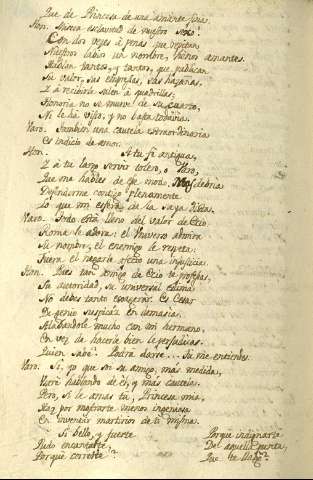 Que de Princesa de una amante fina.
Hon. Nueva esclavitud de nuestro sexo!
Con dos vezes á penas que repitan
Nuestro labio un nombre, somos amantes.
Hablan tantos, y tantos, que publican
Su valor, sus exemplos, sus hazañas.
Y á recibirle salen á quadrillas;
Honoria no se mueve de su cuarto,
Ni le há visto; y no basta todavia.
Varo. Tambien una cautela extraordinaria
Es indicio de amor.
Hon. A tu fé antigua,
Y á tu largo servir tolero, o Varo,
Que me hables de ese modo.
Defenderme contigo plenamente
Lo que mi esfera de la suya dista.
Varo. Todo está lleno del valor de Ecio
Roma le adora: el Universo admira
Su nombre, el enemigo le respeta:
Fuera el negarle afecto una injusticia.
Hon. Pues tan amigo de Ecio te profesas,
Su autoridad, su universal estima
No debes tanto exagerar. Es Cesar
De genio suspicaz en demasia:
Alabandole mucho con mi hermano,
En vez de hacerle bien le perjudicas.
Quien sabe? Podra darse... Ya me entiendes.
Varo. Si, yo que soy su amigo, mas medida,
Iré hablando de él, y mas cautela.
Pero, si le amas tu, Princesa mia,
Haz por mostrarte menos ingeniosa
En inventar martirios de ti misma.
Si bello, y fuerte
Pudo encantarte
Porque correrte?
Porque indignarte
De aquella punta,
Que te llagó?